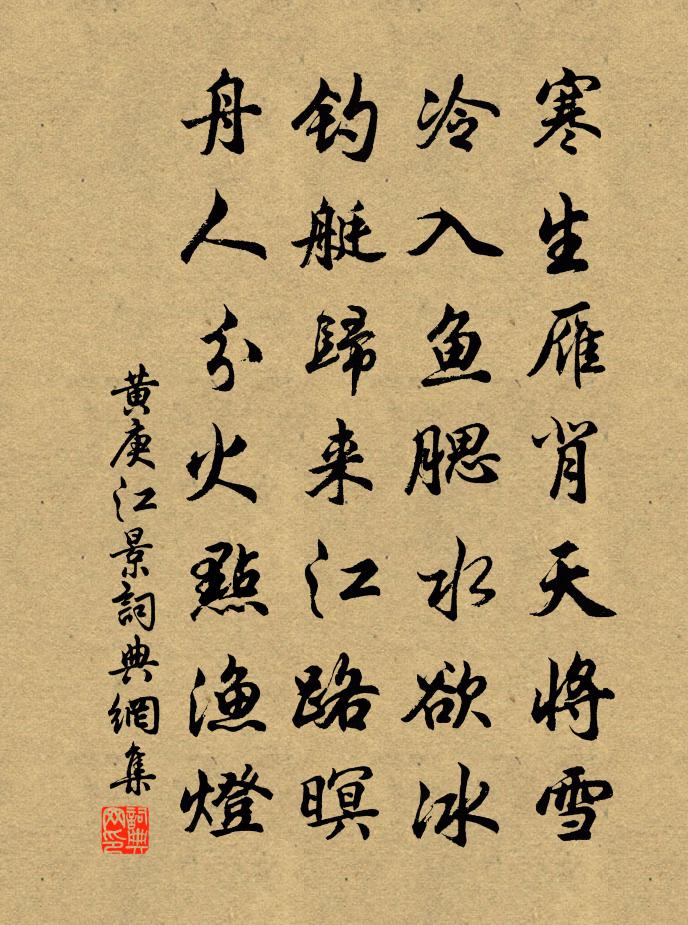 寒生雁背天将雪
冷入鱼腮水欲冰
钓艇歸来江路暝
舟人分火點渔燈
黄庚江景詞典網集
詞典网印